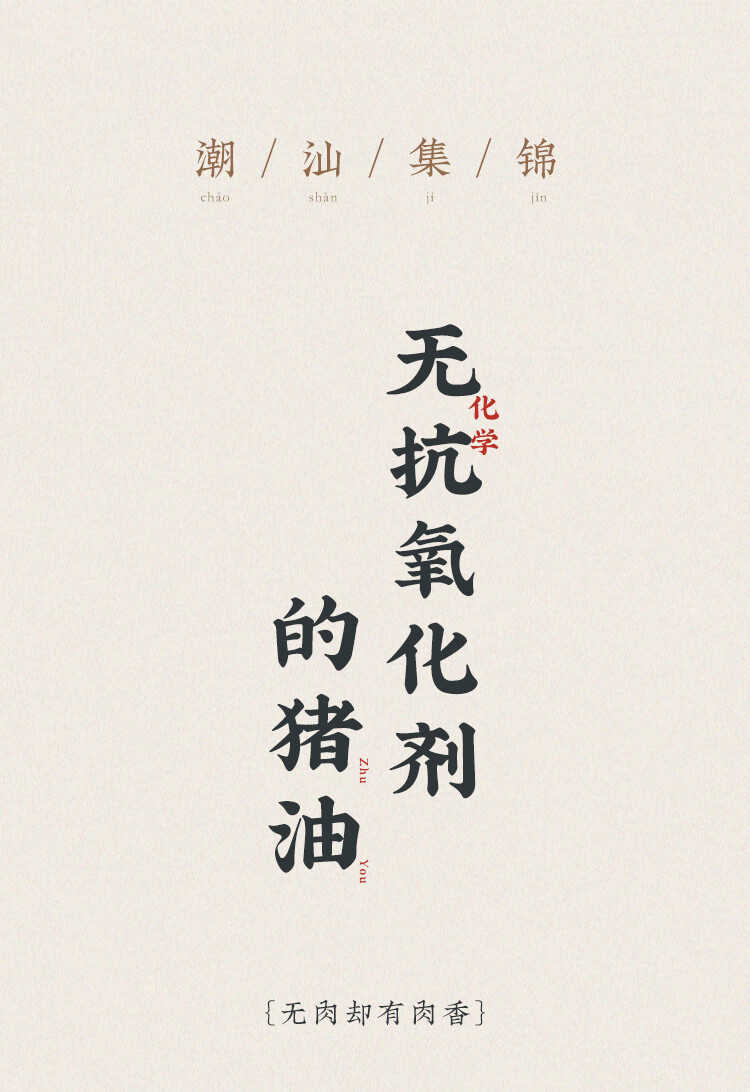 潮/汕/集/锦
cháo shàn jí jǐn
无抗氧化剂
化学
的猪油
Zhu You
{无肉却有肉香}